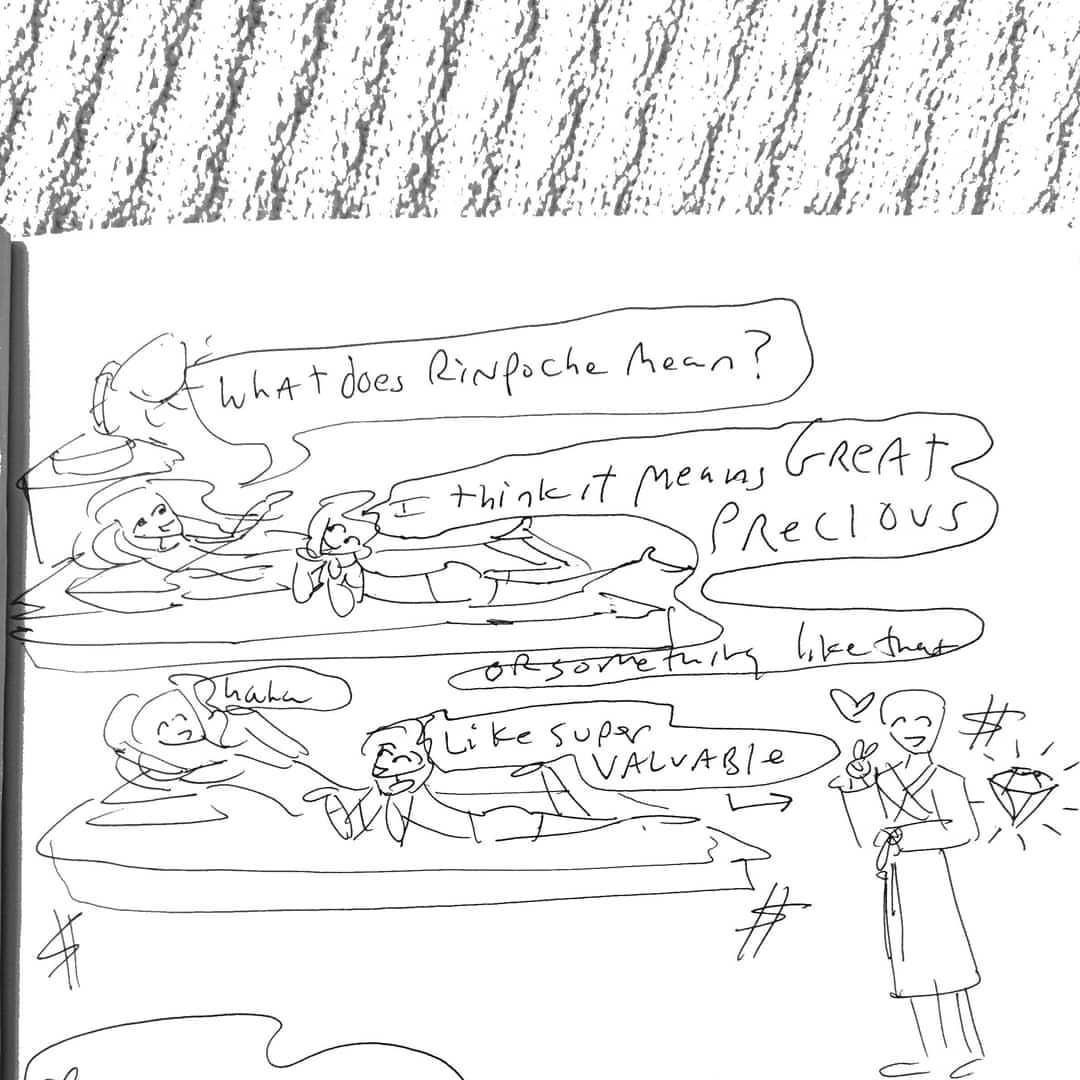 WhAt does RiNpoche Mean?
I think it Means GReAt
PRecIous
oR something like that
haha
Like super
VALUABle